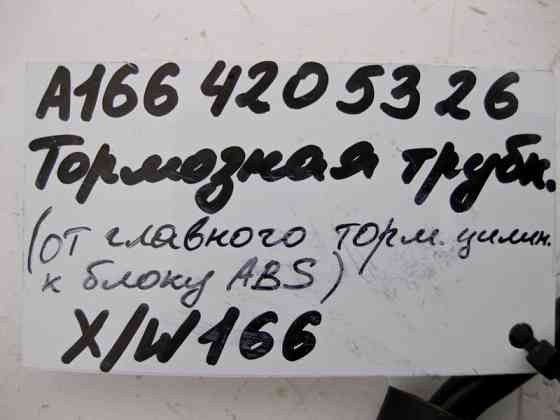 A166 420 53 26
Тормозная трубк.
(от главного торм. цилин.
к блоку ABS)
X/W166